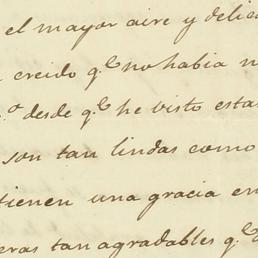 el mayor aire y delica
creido q.e no habia n
.o desde q.e he visto estas
son tan lindas como
tienen una gracia en
eras tan agradables q.e